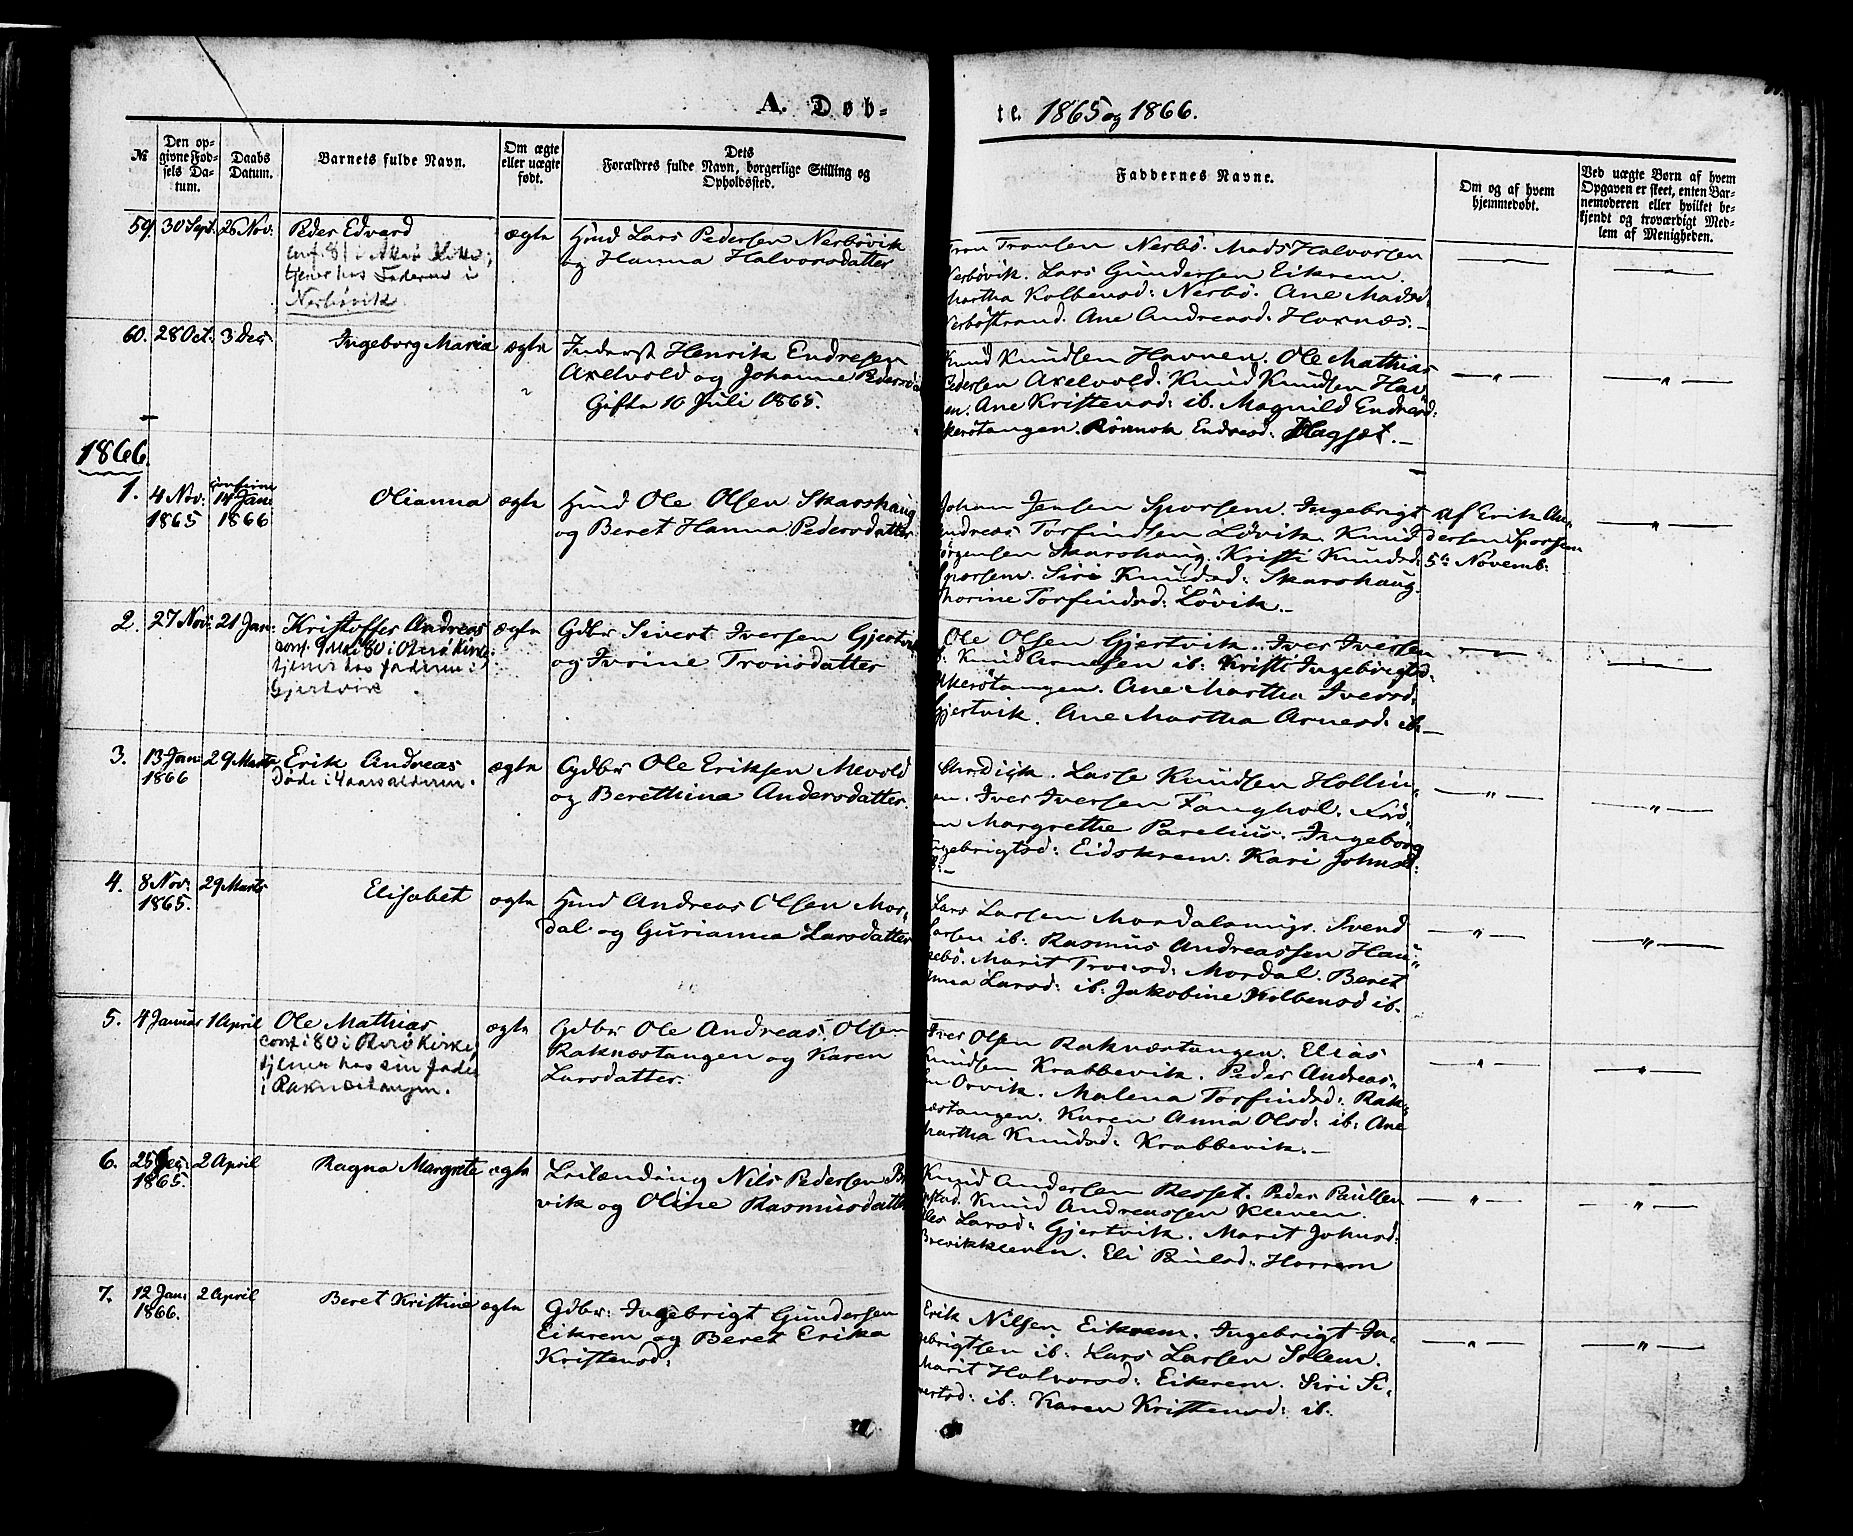 A. Døb-
te. 1865 og 1866.
№
Den op-
givne Fød-
sels Da-
tum.
Daabs
Datum.
Barnets fulde Navn.
Om ægte
eller uægte
født.
Dets
Forældres fulde Navn, borgerlige Stilling og
Opholdssted.
Faddernes Navne.
Om og af hvem
hjemmedøbt.
Ved uægte Børn af hvem
Opgaven er skeet, enten Bar-
nemoderen eller hvilket be-
kjendt og troværdigt Med-
lem af Menigheden.
59. 30 Sept. 26 Nov: Peder Edvard ægte Hmd Lars Pedersen Nerbövik
og Hanna Halvorsdatter
conf. 81 i
tjener hos Faderen i
Nerbövik
Tron Tronsen Nerbö. Mads Halvorsen
Nerbövik. Lars Gundersen Eikrem
Martha Kolbensd: Nerbö. Ane Madsd:
Nerböstrand. Ane Andreasd: Hornæs.
60. 28 Oct. 3 Dec Ingeborg Maria ægte Inderst Henrik Endresen
Axelvold og Johanna Pedersd
Gifte 10 Juli 1865.
Knud Knudsen Havnen. Ole Mathias
Pedersen Axelvold. Knud Knudsen Hav-
en. Ane Kristensd: ib. Magnild Endresd:
Akerötangen. Rönnok Endresd: Hagset.
1866.
1. 4 Nov: 1865 14 Jan: 1866 Olianna ægte Hmd Ole Olsen Skarshaug
og Beret Hanna Pedersdatter
Johan Jensen Sporsem. Ingebrigt
Andreas Torfindsen Lövik. Knud
Jörgensen Skarshaug. Kristi Knudsd:
Sporsem. Siri Knudsd: Skarshaug.
Thorine Torfindsd: Lövik.
af Erik An-
dersen Sporsem
5te Novemb:
2. 27 Nov: 21 Jan: Kristoffer Andreas ægte Gdbr Sivert Iversen Gjertvik
og Ivrine Tronsdatter
conf. 80 i Kirke
tjener hos faderen i
Gjertvik
Ole Olsen Gjertvik. Iver Iversen
ib: Knud Arnesen ib: Kristi Ingebrigtsd:
Akerötangen. Ane Martha Iversd:
Gjertvik. Ane Martha Arnesd: ib.
3. 13 Jan: 1866 29 Marts Erik Andreas ægte Gdbr Ole Eriksen Mevold
og Berethina Andersdatter.
Döde i 4 aarsalderen.
Lasse Knudsen Hollin-
gen. Iver Iversen Fanghol. Frö-
ken Margrethe Parelius. Ingeborg
Ingebrigtsd: Eidskrem. Kari Johnsd:
ib:
4. 8 Nov: 1865. 29 Marts Elisabet ægte Hmd Andreas Olsen Mor-
dal og Gurianna Larsdatter
Lars Larsen Mordalsmyr. Svend
Larsen ib: Rasmus Andreassen Hau-
gebö. Marit Tronsd: Mordal. Beret
Anna Larsd: ib: Jakobine Kolbensd ib.
5. 4 Januar 1 April Ole Mathias ægte Gdbr Ole Andreas Olsen
Raknæstangen og Karen
Larsdatter.
conf i 80 i Kirke
tjener hos sin fader
i Raknæstangen.
Iver Olsen Raknæstangen. Elias
Knudsen Krabbevik. Peder Andreas-
sen Orvik. Malena Torfindsd: Rak-
næstangen. Karen Anna Olsd: ib: Ane
Martha Knudsd: Krabbevik.
6. 25 Dec: 1865. 2 April Ragna Margrete ægte Leilænding Nils Pedersen Bre
vik og Oline Rasmusdatter
Knud Andersen Resset. Peder Paulsen
Knud Andreassen Kleven.
Larsd: Gjertvik. Marit Johnsd:
Brevikkleven. Eli Paulsd: Horrem
7. 12 Jan: 1866. 2 April Beret Kristine ægte Gdbr: Ingebrigt Gundersen
Eikrem og Beret Erika
Kristensd:
Erik Nilsen Eikrem. Ingebrigt In-
gebrigtsen ib: Lars Larsen Solem.
Marit Halvorsd: Eikrem. Siri Si-
vertsd: ib: Karen Kristensd: ib.